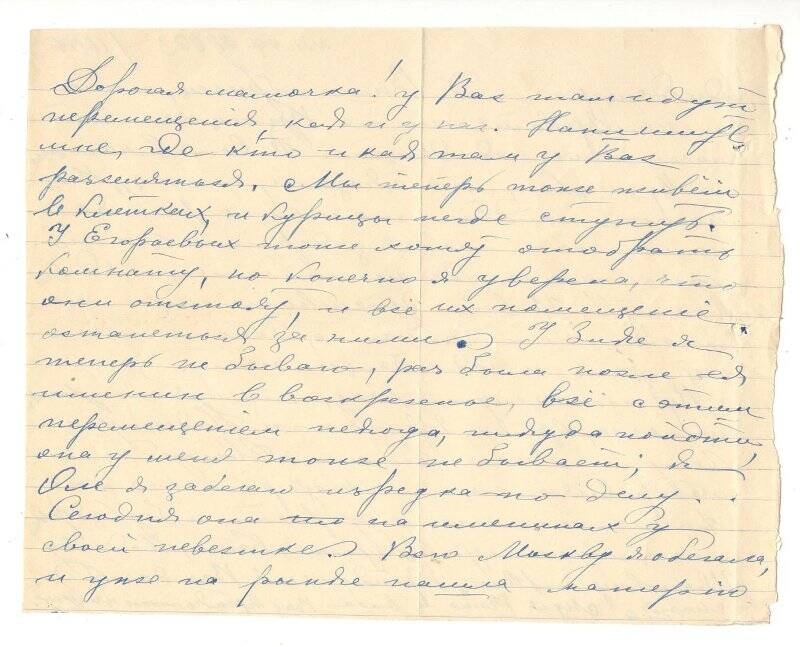 Дорогая мамочка! у Вас там идут
перемещенія, как и у нас. Напишите
мне, где кто и как там у Вас
разселяться. Мы теперь тоже живём
в клетках, и курицы негде ступить.
У Егораевых тоже хотят отобрать
комнату, но конечно я уверена, что
они отстоят, и всё их помещеніе
останеться за ними. У Зиде я
теперь не бываю, раз была после ея
имянин в воскресенье, всё с этим
перемещеніем некогда, никуда пойдти,
она у меня тоже не бывает; к
Оле я забегаю изредка по делу.
Сегодня она на имянинах у
своей невестке. Всю Москву я обегала,
и уже на рынке нашла материю